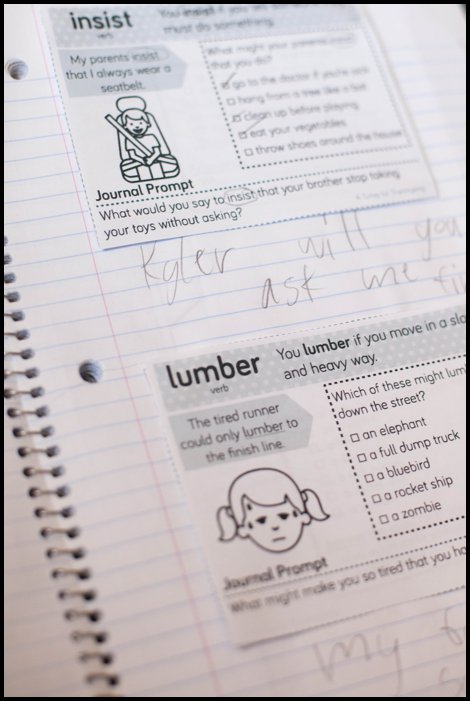 insist
verb
You insist if you
must do something.
My parents insist
that I always wear a
seatbelt.
What might your parents insist
that you do?
go to the doctor if you're sick
hang from a tree like a bat
clean up before playing
eat your vegetables
throw shoes around the house
Journal Prompt
What would you say to insist that your brother stop taking
your toys without asking?
Kyler will you
ask me
lumber
verb
You lumber if you move in a
and heavy way.
The tired runner
could only lumber to
the finish line.
Which of these might
down the street?
an elephant
a full dump truck
a bluebird
a rocket ship
a zombie
Journal Prompt
What might make you so tired that you
my